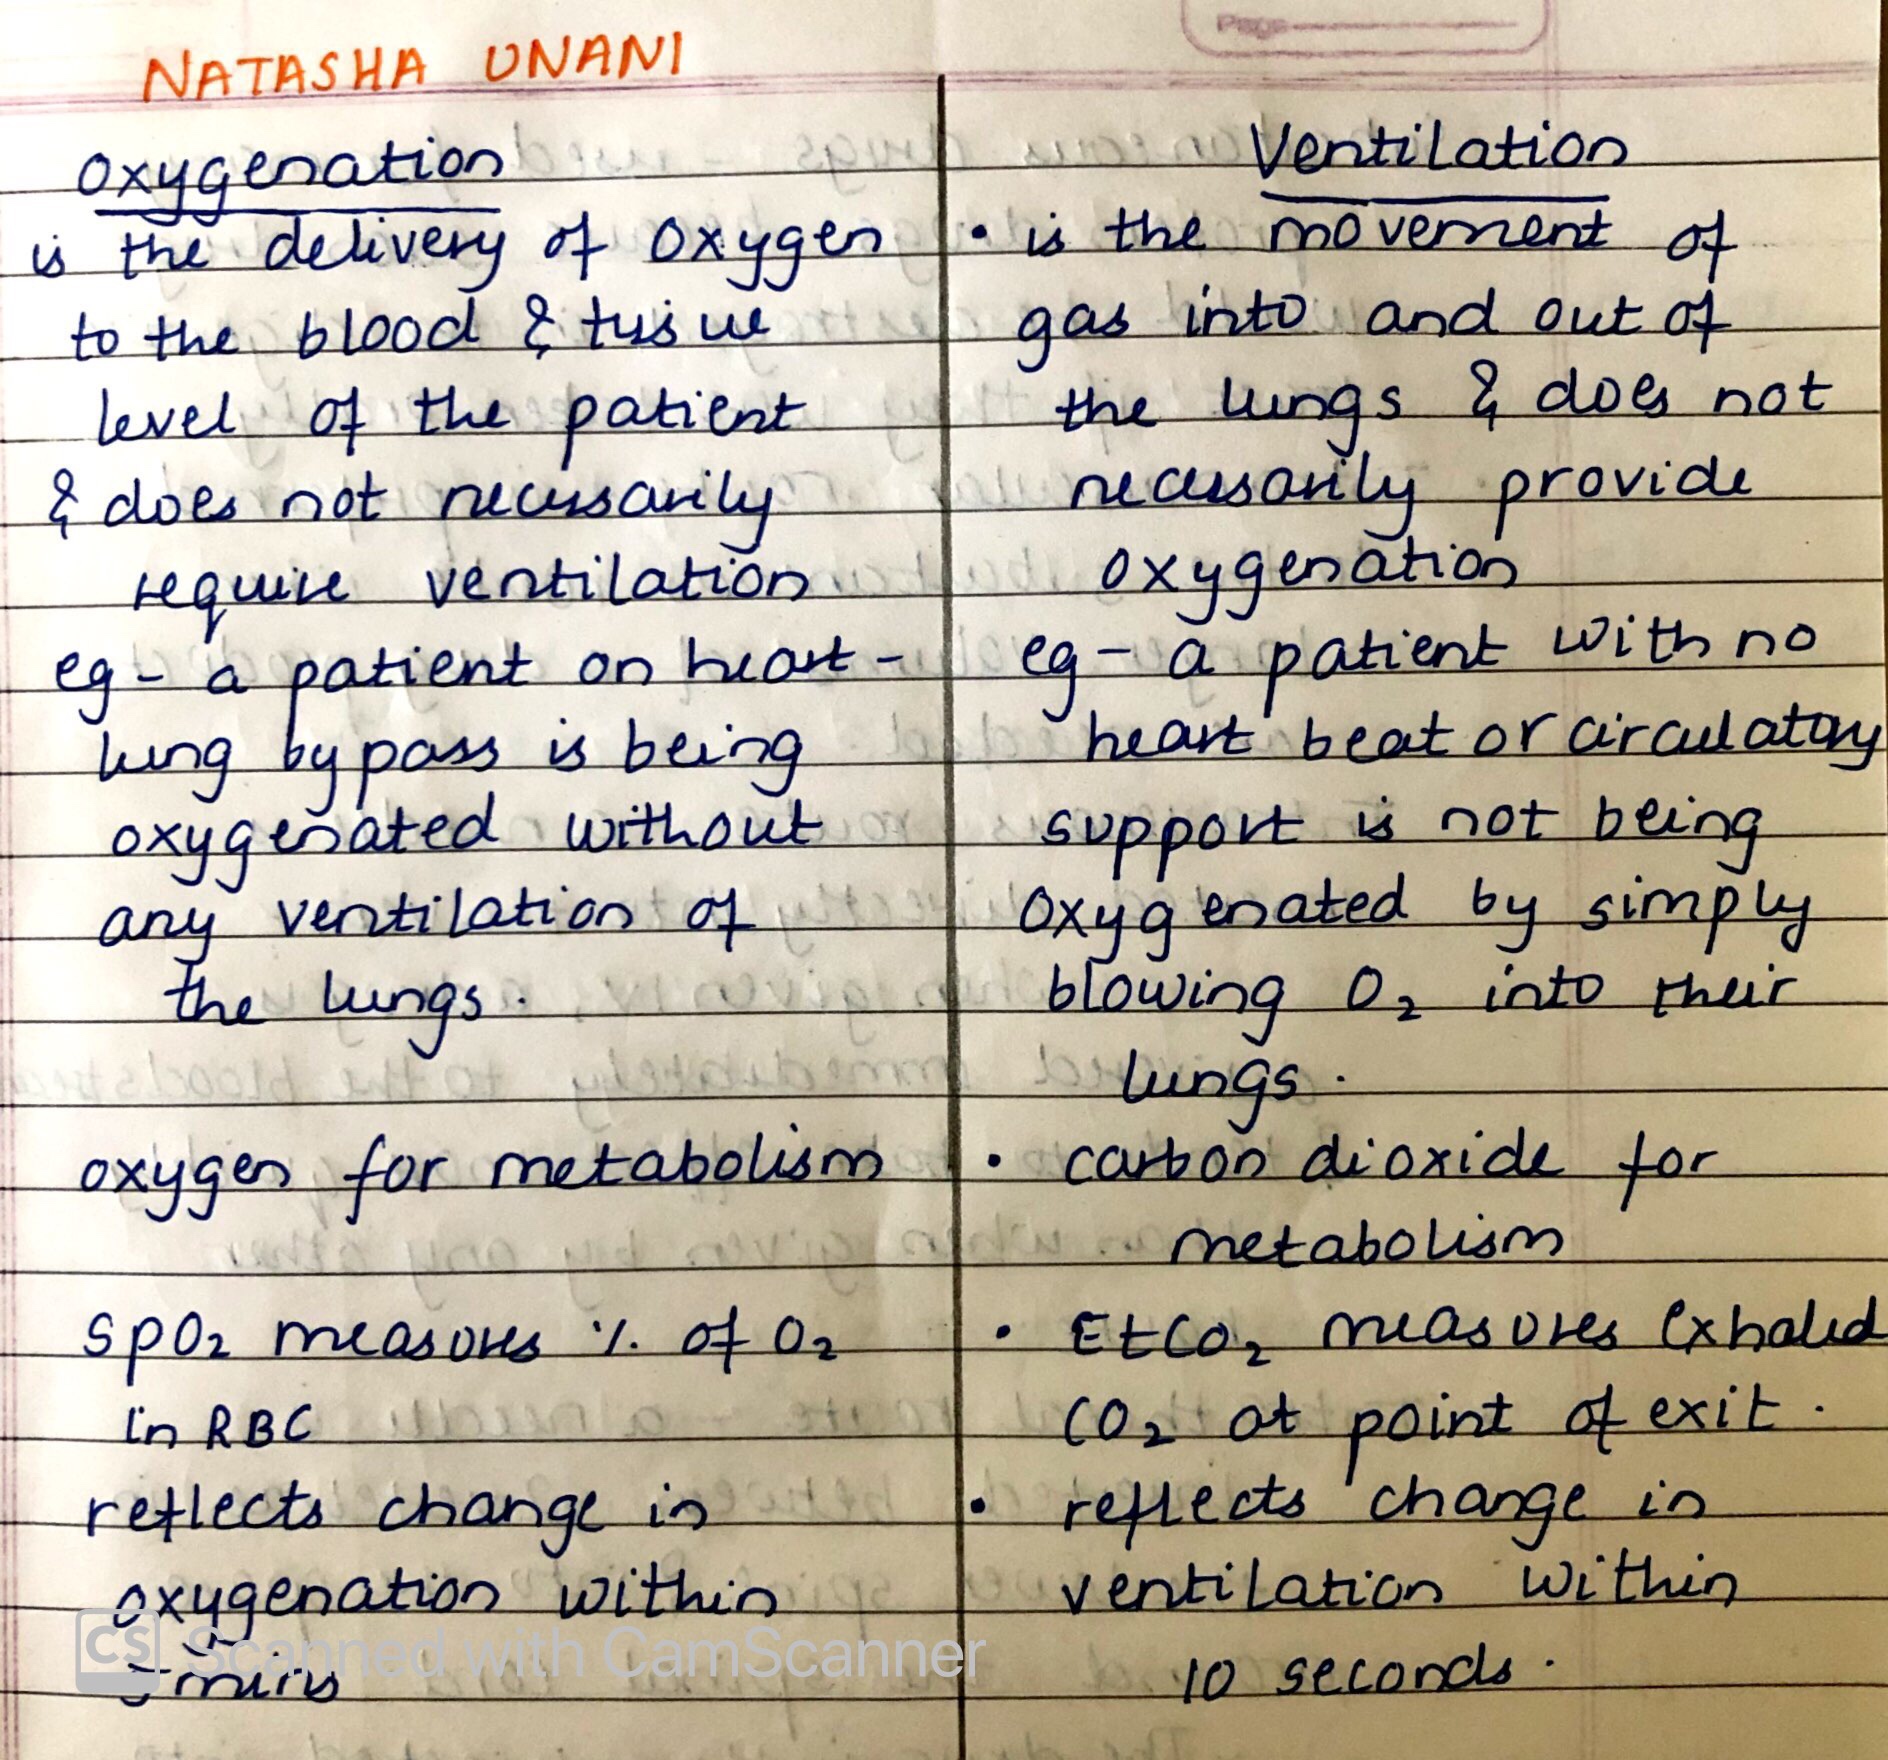 NATASHA UNANI
oxygenation
is the delivery of oxygen
to the blood & tissue
level of the patient
& does not necessarily
require ventilation
eg - a patient on heart -
lung bypass is being
oxygenated without
any ventilation of
the lungs.
oxygen for metabolism
SpO2 measures % of O2
in RBC
reflects change in
oxygenation within
mins
Ventilation
• is the movement of
gas into and out of
the lungs & does not
necessarily provide
oxygenation
eg - a patient with no
heart beat or circulatory
support is not being
oxygenated by simply
blowing O2 into their
lungs.
• carbon dioxide for
metabolism
• EtCO2 measures exhaled
CO2 at point of exit.
• reflects change in
ventilation within
10 seconds.
CS Scanned with CamScanner